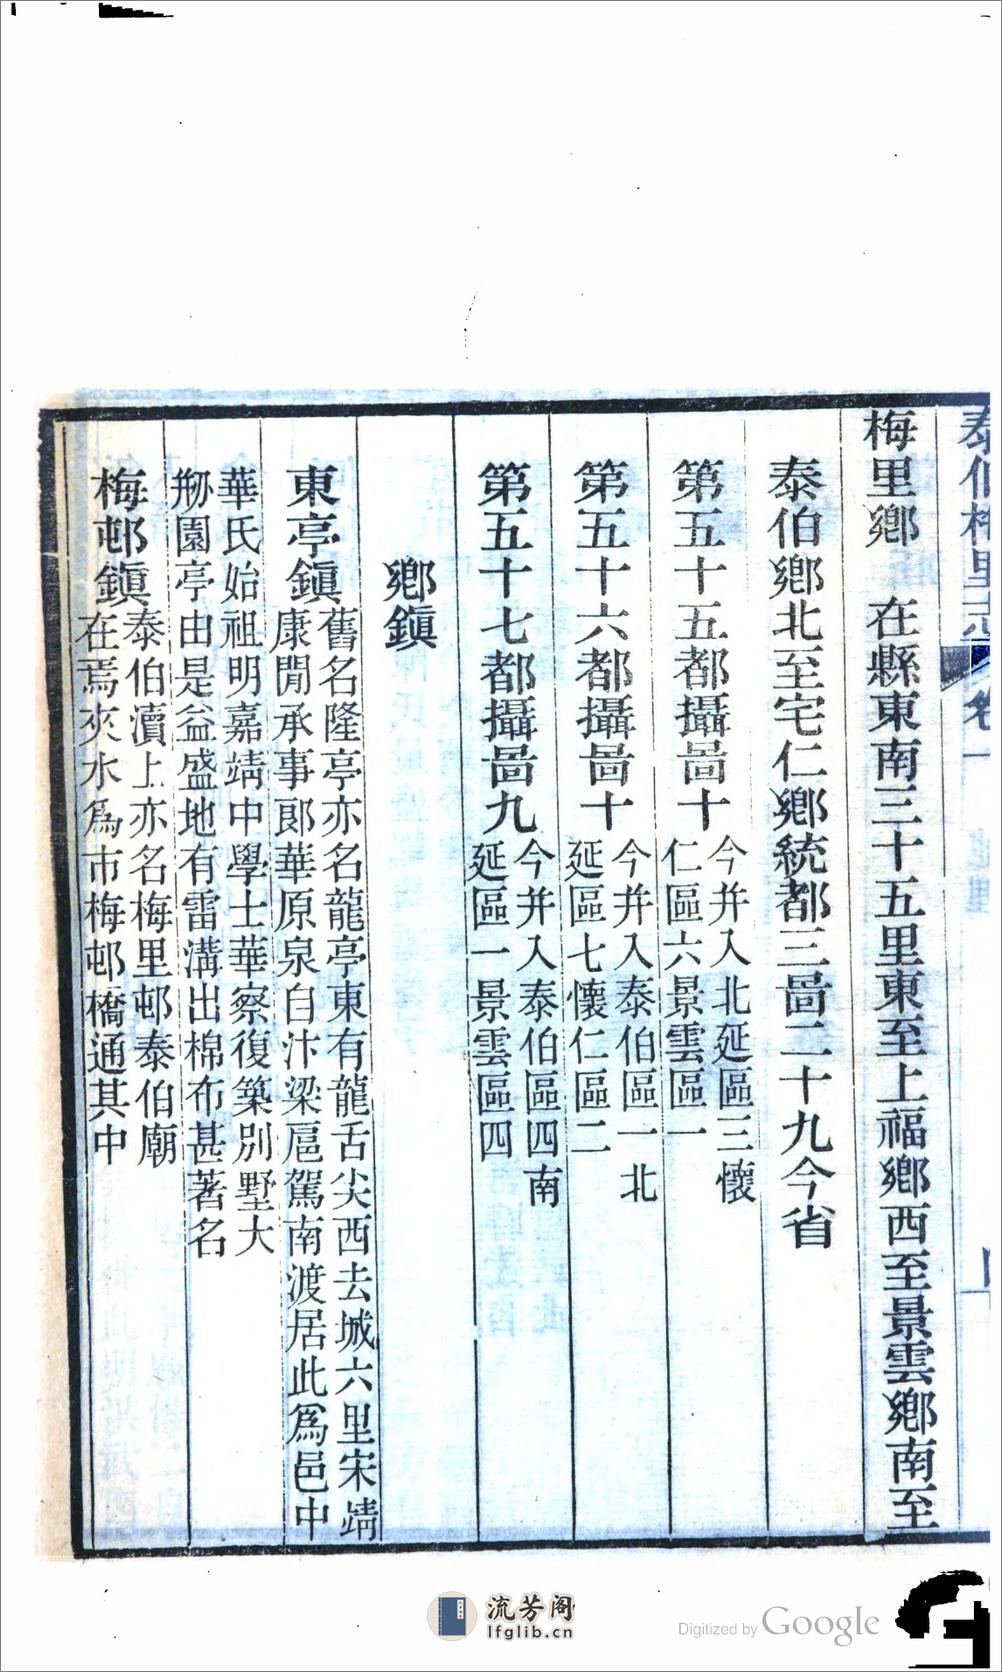 泰伯梅里志 卷一
梅里鄉 在縣東南三十五里東至上福鄉西至景雲鄉南至
泰伯鄉北至宅仁鄉統都三啚二十九今省
第五十五都攝啚十 今并入北延區三懷
仁區六景雲區一
第五十六都攝啚十 今并入泰伯區一北
延區七懷仁區二
第五十七都攝啚九 今并入泰伯區四南
延區一景雲區四
鄉鎮
東亭鎮 舊名隆亭亦名龍亭東有龍舌尖西去城六里宋靖
康閒承事郎華原泉自汴梁扈駕南渡居此爲邑中
華氏始祖明嘉靖中學士華察復築別墅大
剙園亭由是益盛地有雷溝出棉布甚著名
梅邨鎮 泰伯瀆上亦名梅里邨泰伯廟
在焉夾水爲市梅邨橋通其中
流芳阁
lfglib.cn
Digitized by Google